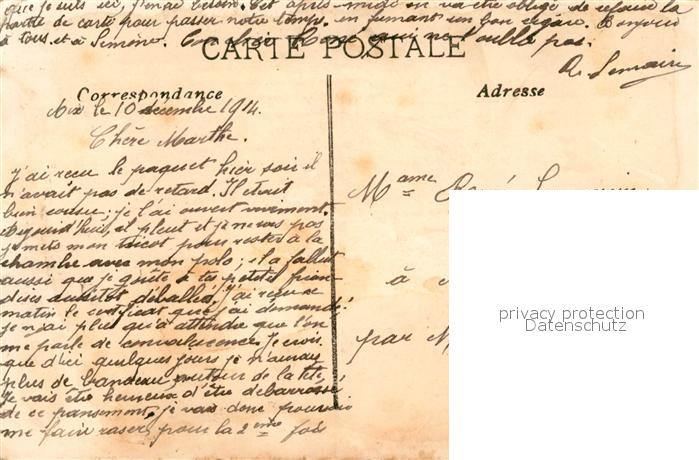 que je suis ici, j'en ai besoin. Cet après-midi on va être obligé de refaire la
partie de carte pour passer notre temps en fumant un bon cigare. Bonjour
à tous et à Simone. qui ne t'oublie pas.
CARTE POSTALE
Correspondance
Adresse
le 10 décembre 1914.
Chère Marthe.
J'ai reçu le paquet hier soir il
n'avait pas de retard. Il était
bien cousu; je l'ai ouvert vivement.
Aujourd'hui, il pleut et je ne vais pas
je mets mon tricot pour rester à la
chambre avec mon polo; il a fallut
aussi que je goûte à tes petites frian-
dises aussitôt déballées. J'ai reçu ce
matin le certificat que j'ai demandé!
je n'ai plus qu'à attendre que l'on
me parle de convalescence. Je crois
que d'ici quelques jours je n'aurai
plus de bandeau autour de la tête,
Je vais être heureux d'être débarrassé
de ce pansement, je vais donc pouvoir
me faire raser pour la 2ème fois
Mame
à
par
privacy protection
Datenschutz